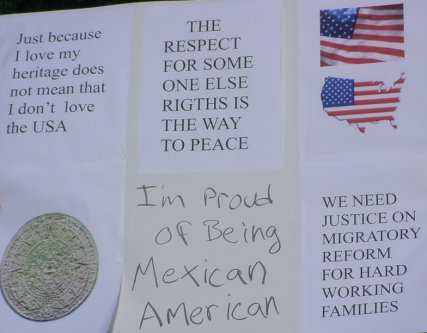 Just because
I love my
heritage does
not mean that
I don't love
the USA
THE
RESPECT
FOR SOME
ONE ELSE
RIGTHS IS
THE WAY
TO PEACE
I'm Proud
of Being
Mexican
American
WE NEED
JUSTICE ON
MIGRATORY
REFORM
FOR HARD
WORKING
FAMILIES